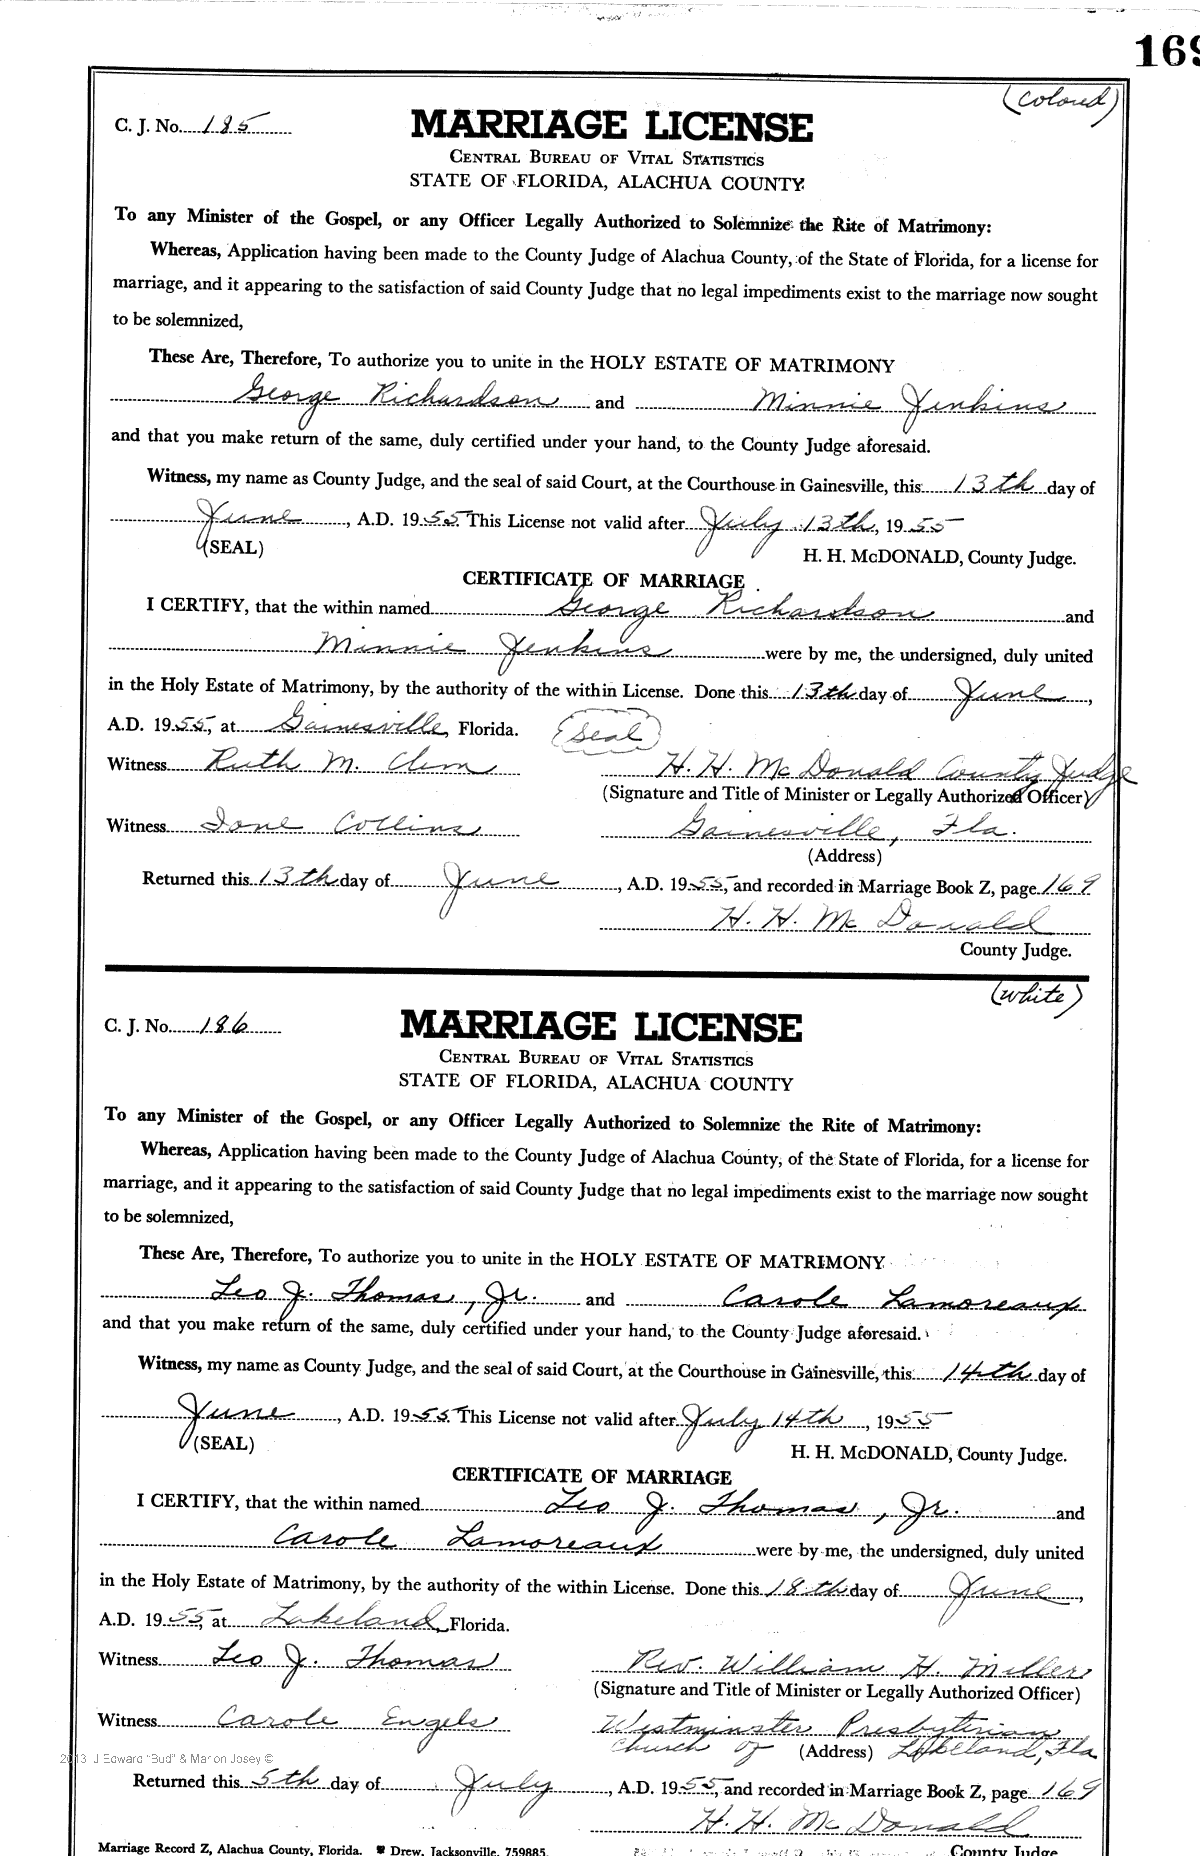 169
(Colored)
C. J. No. 185
MARRIAGE LICENSE
CENTRAL BUREAU OF VITAL STATISTICS
STATE OF FLORIDA, ALACHUA COUNTY
To any Minister of the Gospel, or any Officer Legally Authorized to Solemnize the Rite of Matrimony:
Whereas, Application having been made to the County Judge of Alachua County, of the State of Florida, for a license for
marriage, and it appearing to the satisfaction of said County Judge that no legal impediments exist to the marriage now sought
to be solemnized,
These Are, Therefore, To authorize you to unite in the HOLY ESTATE OF MATRIMONY
George Richardson and Minnie Jenkins
and that you make return of the same, duly certified under your hand, to the County Judge aforesaid.
Witness, my name as County Judge, and the seal of said Court, at the Courthouse in Gainesville, this 13th day of
June, A.D. 1955. This License not valid after July 13th, 1955
(SEAL) H. H. McDONALD, County Judge.
CERTIFICATE OF MARRIAGE
I CERTIFY, that the within named George Richardson and
Minnie Jenkins were by me, the undersigned, duly united
in the Holy Estate of Matrimony, by the authority of the within License. Done this 13th day of June,
A.D. 1955, at Gainesville, Florida. (Seal)
Witness Ruth M. Clem H. H. McDonald County Judge
(Signature and Title of Minister or Legally Authorized Officer)
Witness Ione Collins Gainesville, Fla.
(Address)
Returned this 13th day of June, A.D. 1955, and recorded in Marriage Book Z, page 169
H. H. McDonald
County Judge.
(White)
C. J. No. 186
MARRIAGE LICENSE
CENTRAL BUREAU OF VITAL STATISTICS
STATE OF FLORIDA, ALACHUA COUNTY
To any Minister of the Gospel, or any Officer Legally Authorized to Solemnize the Rite of Matrimony:
Whereas, Application having been made to the County Judge of Alachua County, of the State of Florida, for a license for
marriage, and it appearing to the satisfaction of said County Judge that no legal impediments exist to the marriage now sought
to be solemnized,
These Are, Therefore, To authorize you to unite in the HOLY ESTATE OF MATRIMONY
Leo J. Thomas, Jr. and Carole Lamoreaux
and that you make return of the same, duly certified under your hand, to the County Judge aforesaid.
Witness, my name as County Judge, and the seal of said Court, at the Courthouse in Gainesville, this 14th day of
June, A.D. 1955. This License not valid after July 14th, 1955
(SEAL) H. H. McDONALD, County Judge.
CERTIFICATE OF MARRIAGE
I CERTIFY, that the within named Leo J. Thomas, Jr. and
Carole Lamoreaux were by me, the undersigned, duly united
in the Holy Estate of Matrimony, by the authority of the within License. Done this 18th day of June,
A.D. 1955, at Lakeland, Florida.
Witness Leo J. Thomas Rev. William H. Miller
(Signature and Title of Minister or Legally Authorized Officer)
Witness Carole Engels Westminster Presbyterian
Church of (Address) Lakeland, Fla
2013 J Edward "Bud" & Marion Josey ©
Returned this 5th day of July, A.D. 1955, and recorded in Marriage Book Z, page 169
H. H. McDonald
County Judge
Marriage Record Z, Alachua County, Florida. Drew, Jacksonville, 759885.